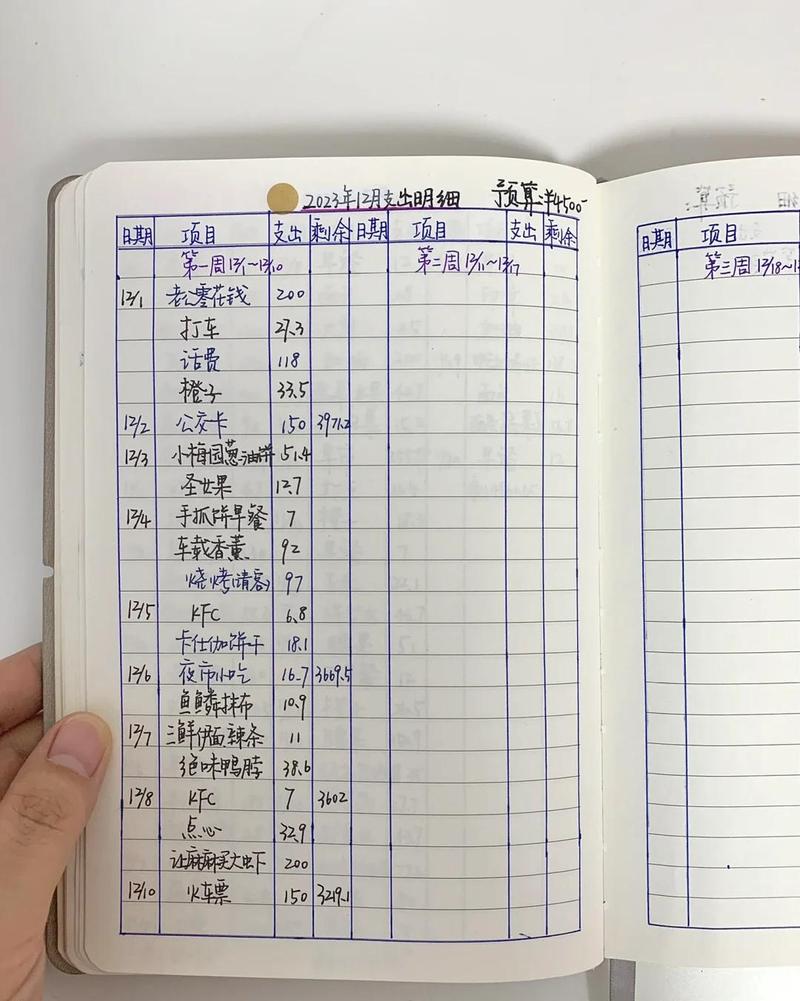 2023年12月支出明细 预算:¥4500-
日期 项目 支出 剩余 日期 项目 支出 剩余
第一周12/1~12/10 第二周12/11~12/17
12/1 老公零花钱 200
打车 27.3
话费 118
橙子 33.5
12/2 公交卡 150 3971.2
12/3 小梅园葱油饼 51.4
圣女果 12.7
12/4 手抓饼早餐 7
车载香薰 92
烧烤(请客) 97
12/5 KFC 6.8
卡仕伽饼干 18.1
12/6 夜市小吃 16.7 3669.5
鱼鳞抹布 10.9
12/7 三鲜伊面辣条 11
绝味鸭脖 38.6
12/8 KFC 7 3602
点心 32.9
让麻麻买大虾 200
12/10 火车票 150 3219.1
日期 项目
第三周12/18~